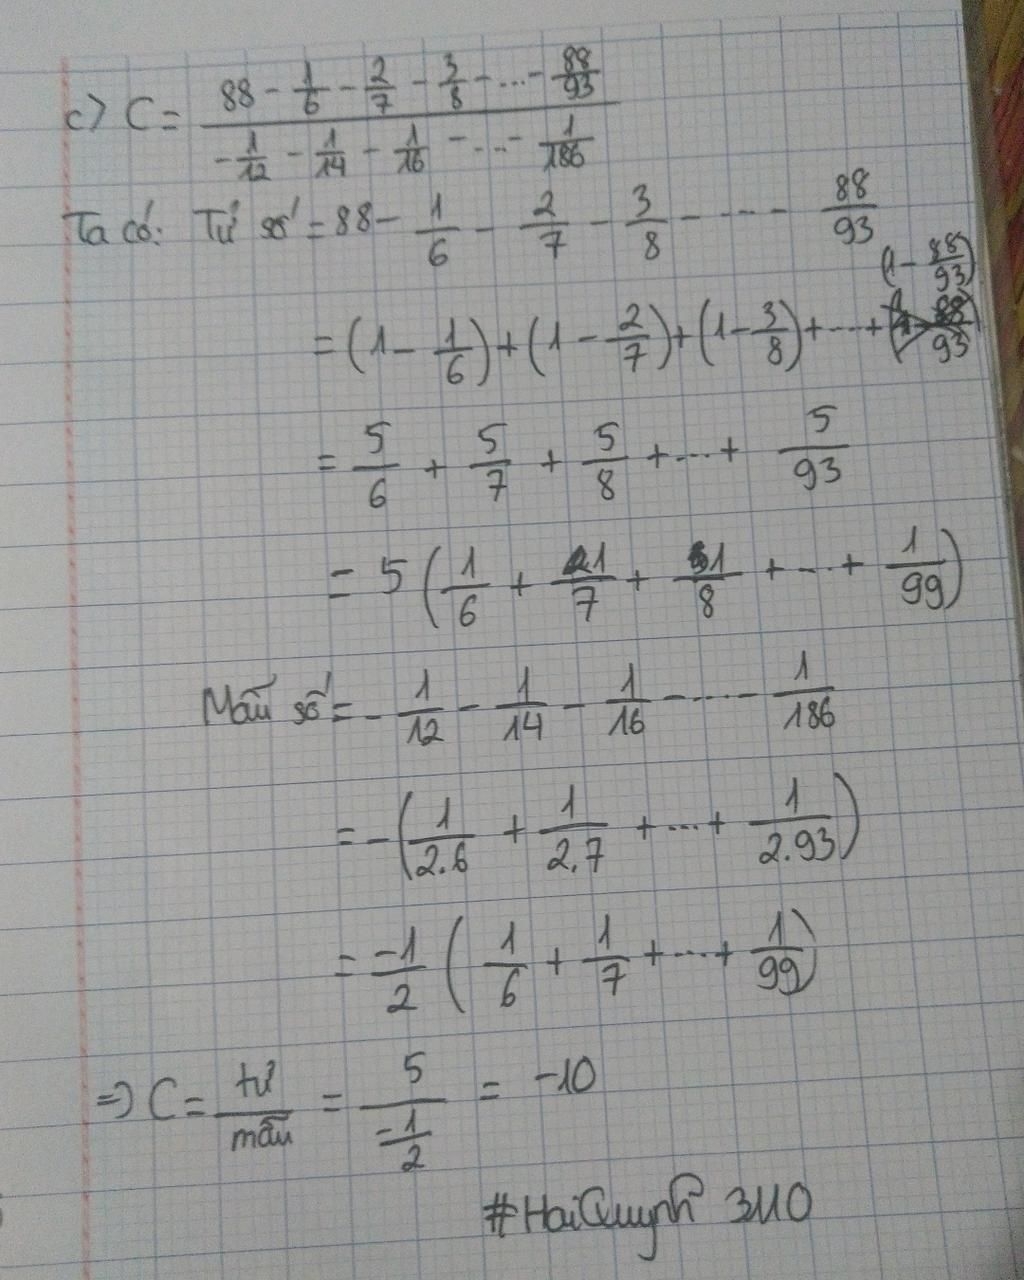 c) C = (88 - 1/6 - 2/7 - 3/8 - ... - 88/93) / (-1/12 - 1/14 - 1/16 - ... - 1/186)
Ta có: Tử số = 88 - 1/6 - 2/7 - 3/8 - ... - 88/93
= (1 - 1/6) + (1 - 2/7) + (1 - 3/8) + ... + (1 - 88/93)
= 5/6 + 5/7 + 5/8 + ... + 5/93
= 5 (1/6 + 1/7 + 1/8 + ... + 1/99)
Mẫu số = - 1/12 - 1/14 - 1/16 - ... - 1/186
= - (1/2.6 + 1/2.7 + ... + 1/2.93)
= -1/2 (1/6 + 1/7 + ... + 1/99)
=> C = tử/mẫu = 5/(-1/2) = -10
#HaiQuynh 3110